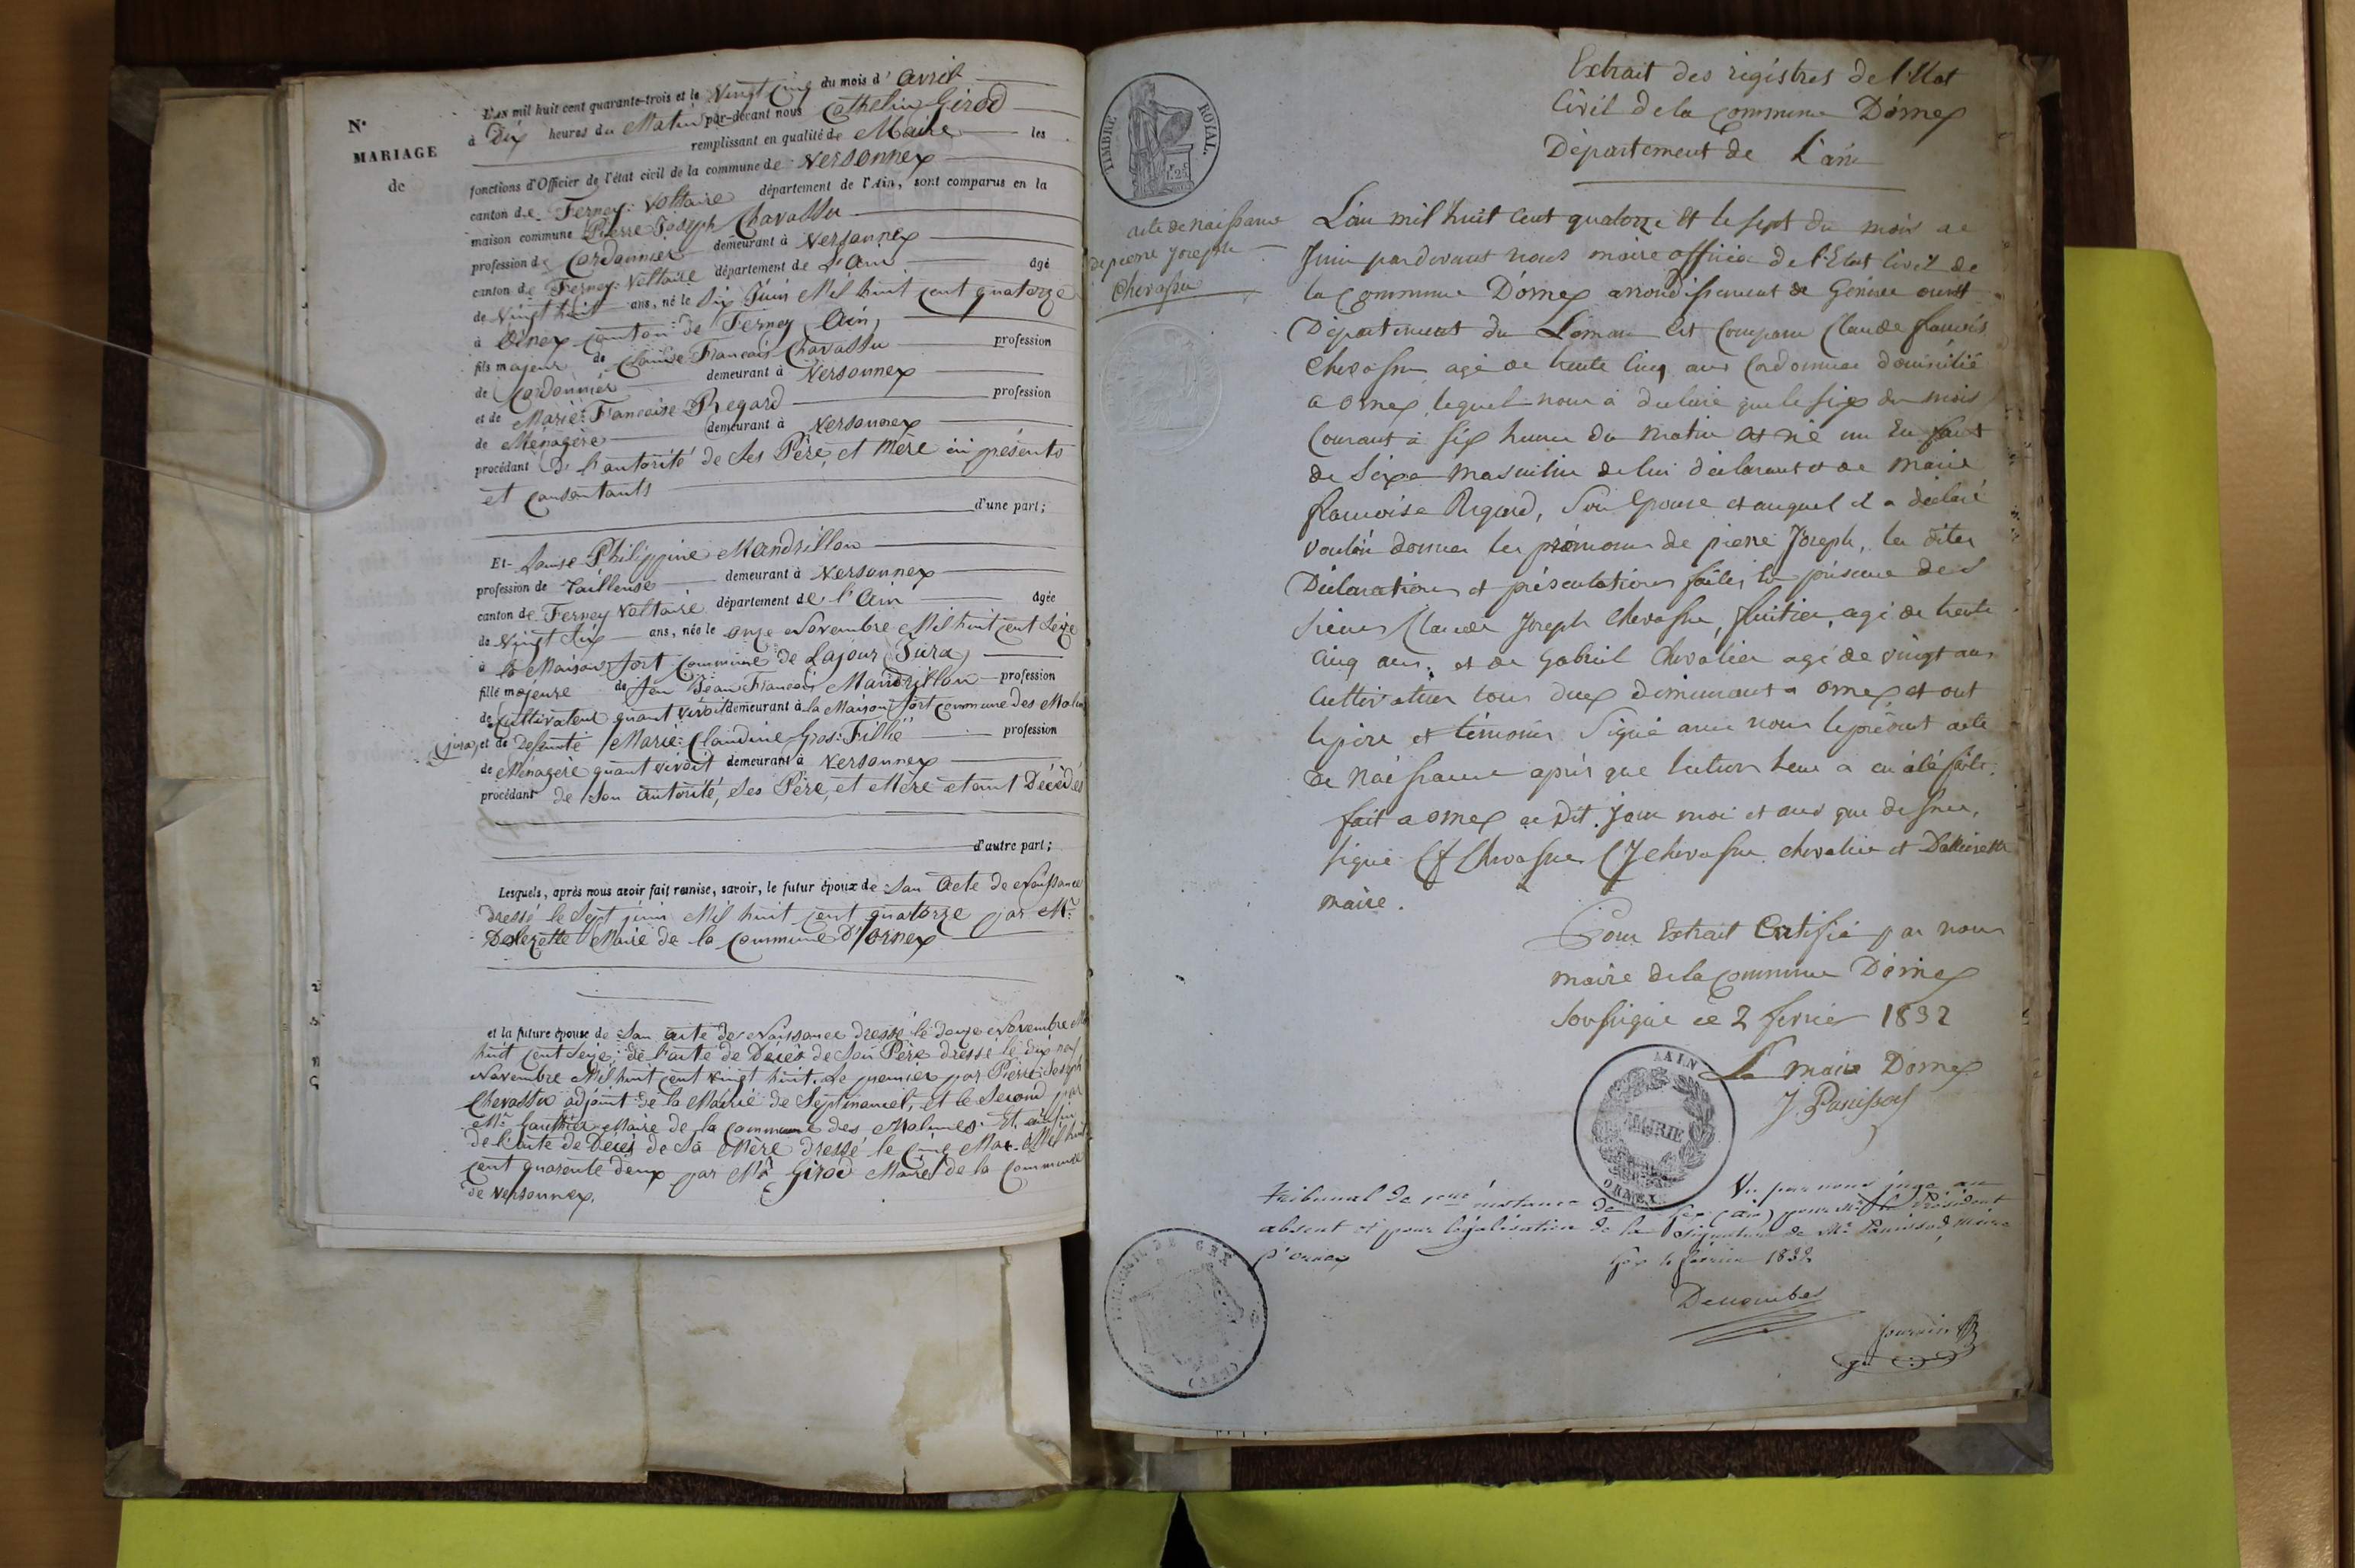 N°
MARIAGE
de
L'AN mil huit cent quarante-trois et le Vingt Cinq du mois d' Avril
à Dix heures du Matin par-devant nous Cathelin Girod
remplissant en qualité de Maire les
fonctions d'Officier de l'état civil de la commune de Versonnex
canton de Ferney-Voltaire département de l'Ain, sont comparus en la
maison commune Pierre Joseph Chavassu
profession de Cordonnier demeurant à Versonnex
canton de Ferney-Voltaire département de L'Ain âgé
de Vingt huit ans, né le Six Juin Mil huit cent quatorze
à Ornex canton de Ferney (Ain)
fils majeur de Claude François Chavassu profession
de Cordonnier demeurant à Versonnex
et de Marie Françoise Regard profession
de Ménagère demeurant à Versonnex
procédant D' l'autorité de Ses Père et Mère ici présents
et Consentants
d'une part;
Et Louise Philippine Mandrillon
profession de Tailleuse demeurant à Versonnex
canton de Ferney Voltaire département de l'Ain âgée
de Vingt Six ans, née le Onze Novembre Mil huit cent Seize
à la Maison fort Commune de Lajoux (Jura)
fille majeure de feu Jean François Mandrillon profession
de Cultivateur quant vivoit demeurant à la Maison fort Commune des Molun
(jura) et de Defunte Marie Claudine Gros-Fillie profession
de Ménagère quant vivoit demeurant à Versonnex
procédant de Son Autorité, Ses Père, et Mère etant Décédés
d'autre part;
Lesquels, après nous avoir fait remise, savoir, le futur époux de Son Acte de Naissance
dressé le Sept juin Mil huit cent quatorze par Mr
Delezette Maire de la Commune D'Ornex
et la future épouse de Son acte de Naissance dressé le douze Novembre Mil
huit cent Seize; de l'acte de Décès de Son Père dressé le dix neuf
Novembre Mil huit cent Vingt huit. Le premier par Pierre Joseph
Chevassu adjoint de la Mairie de Septmoncel, et le Second par
Mr Gauthier Maire de la Commune des Molunes. Et enfin
de l'acte de Décès de Sa Mère dressé le Cinq Mai Mil huit
Cent quarante deux par Mr Girod Maire de la Commune
de Versonnex.
TIMBRE ROYAL.
acte de naissance
de pierre joseph
Chevassu
Extrait des registres de l'Etat
Civil de la Commune D'ornex
Département de L'ain
L'an mil huit cent quatorze et le sept du mois de
Juin pardevant nous maire officier de l'Etat Civil de
la Commune D'ornex arrondissement de Genève
Département du Leman est Comparu Claude François
Chevassu agé de trente Cinq ans Cordonnier domicilié
a ornex, lequel nous a déclaré que le six du mois
Courant à six heures du matin est né un Enfant
de Sexe Masculin de lui déclarant et de Marie
Françoise Regard, Son Epouse et auquel il a déclaré
vouloir donner les prénoms de pierre Joseph, les dites
Déclarations et présentations faites en présence des
Sieurs Claude Joseph Chevassu, fruitier, agé de trente
Cinq ans, et de Gabriel Chevalier agé de vingt ans
Cultivateur tous deux demeurant a ornex et ont
le père et témoins Signé avec nous le présent acte
de naissance après que lecture leur a eu été faite.
fait a ornex ce dit jour moi et ans que dessus,
signé CF Chevassu CJ Chevassu Chevalier et
maire.
Pour Extrait Certifié par nous
maire de la Commune D'ornex
Soussigné ce 2 fevrier 1832
Le maire Dornex
J. Panissod
AIN
MAIRIE
ORNEX
Vu par nous juge au
tribunal de 1ere instance de Gex (ain) pour Mr le Président
absent et pour légalisation de la signature de Mr Panissod, maire
d'ornex
Gex fevrier 1832
TRIBUNAL DE GEX